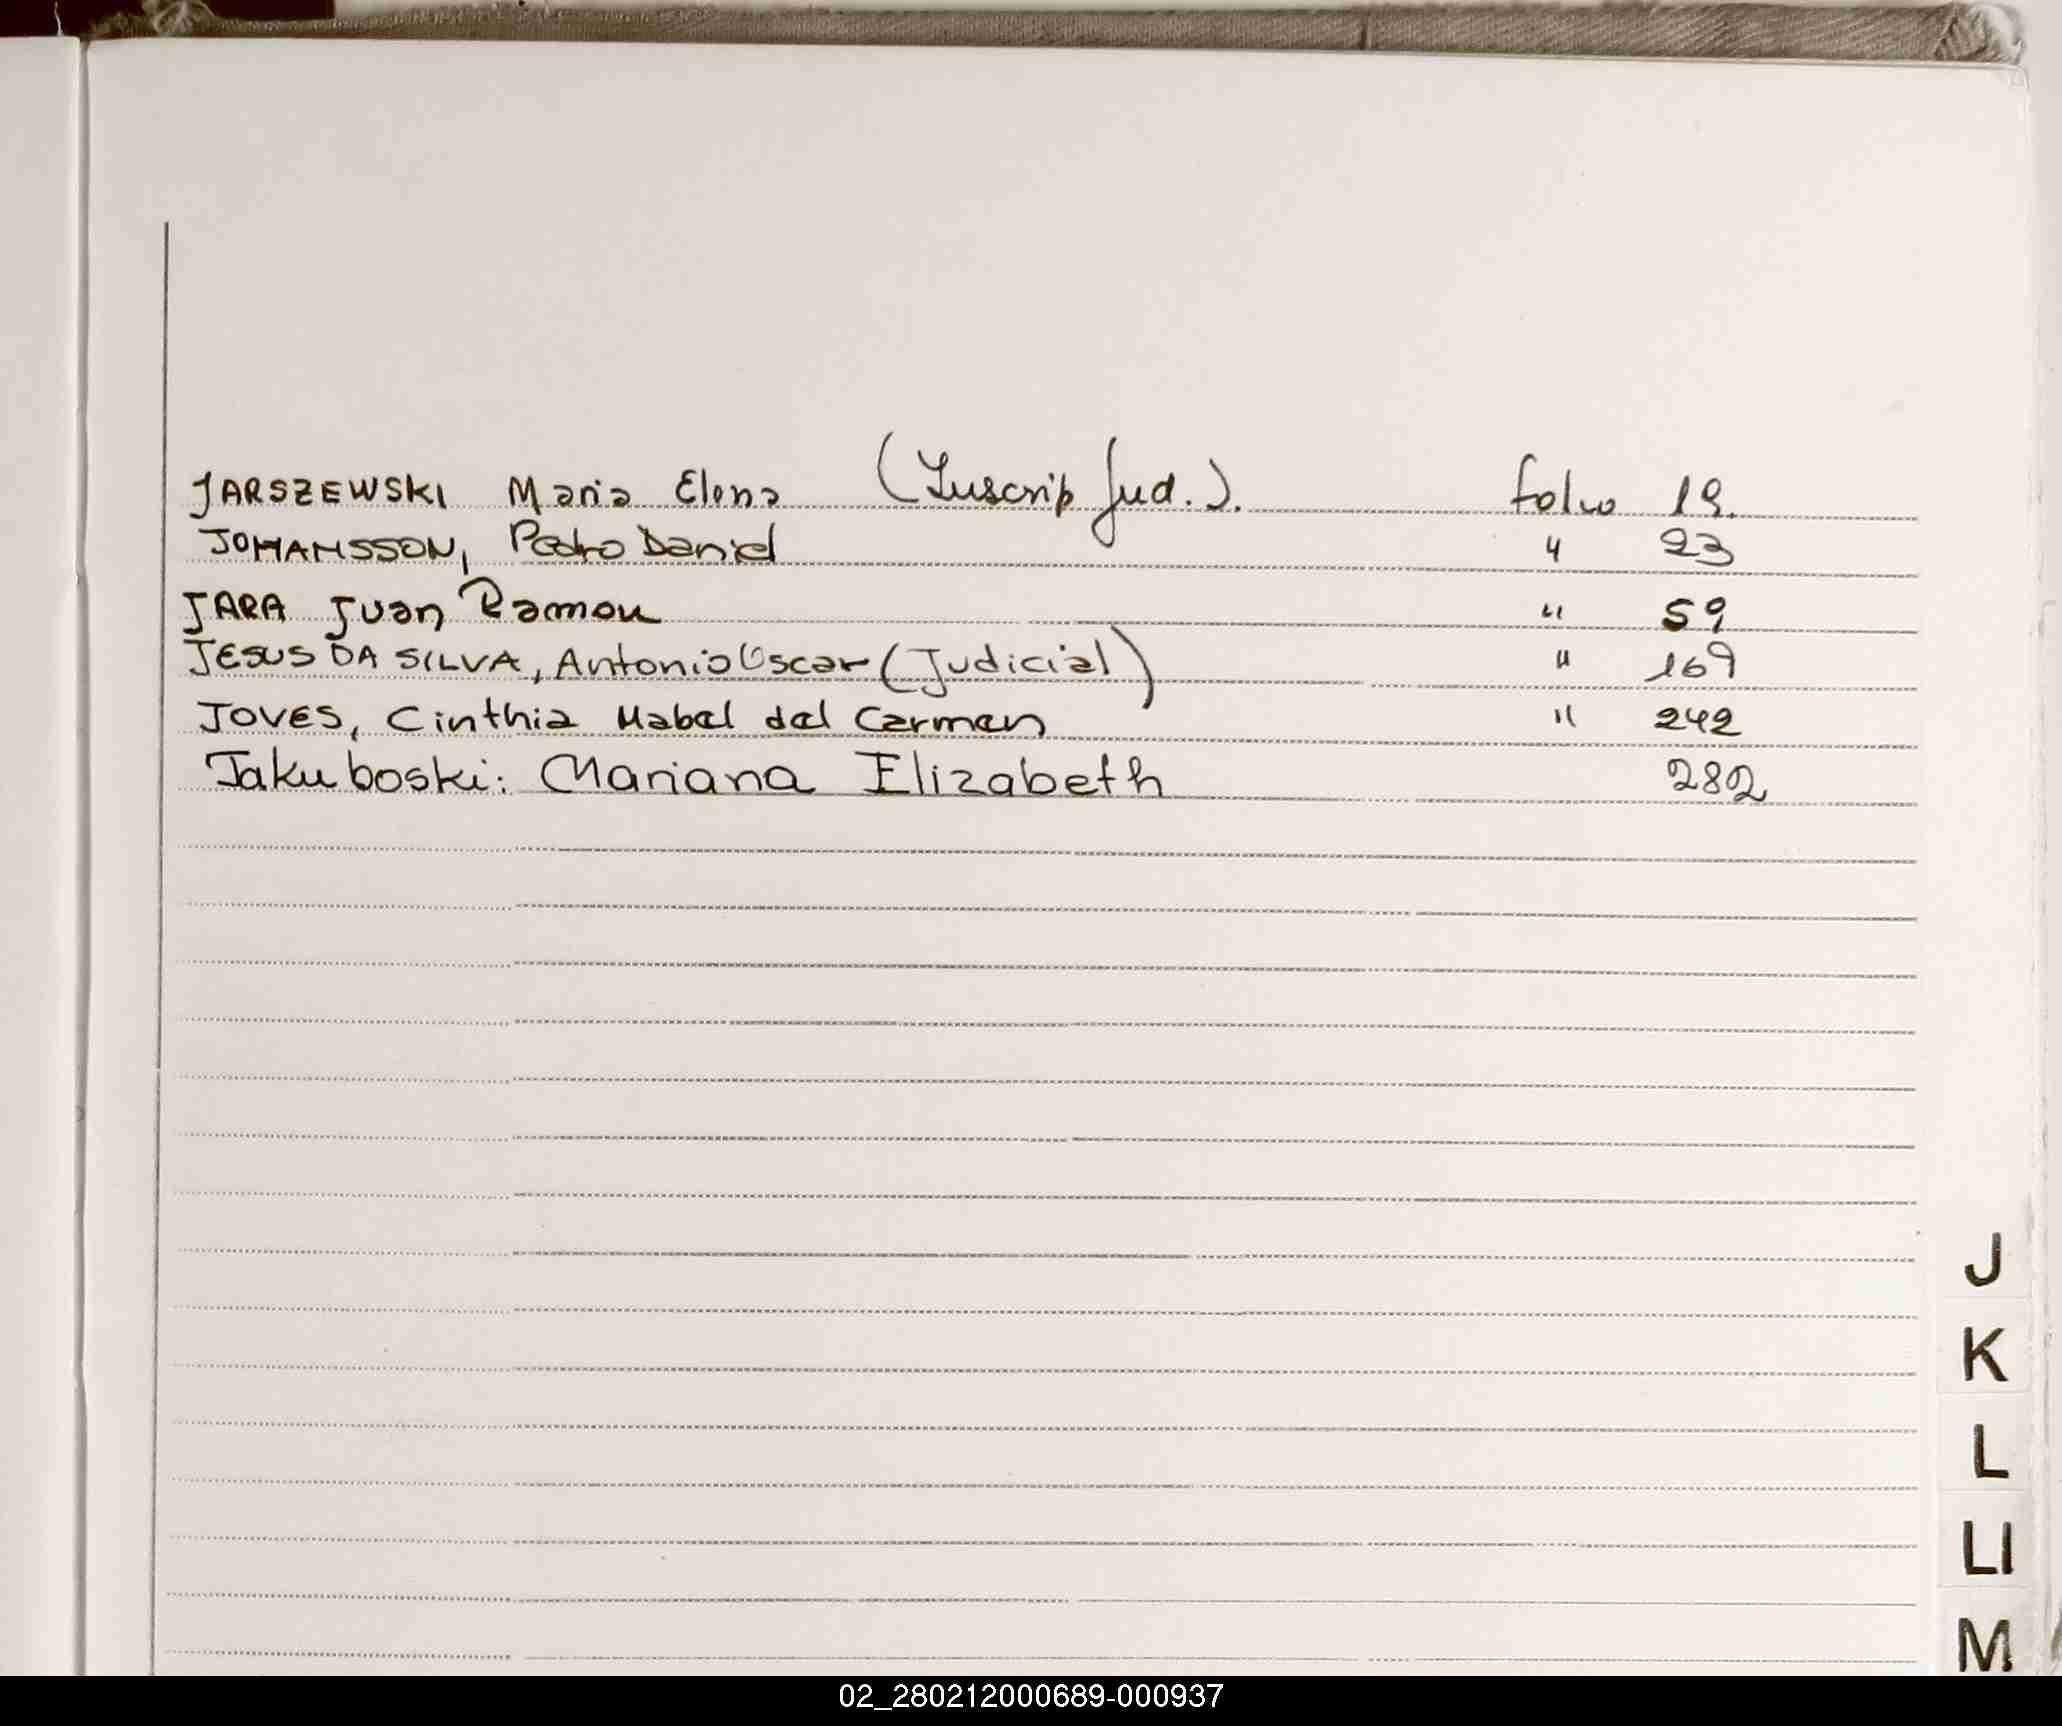 JARSZEWSKI Maria Elena (Inscrip Jud.). folio 19.
JOHANSSON, Pedro Daniel " 23
JARA Juan Ramon " 59
JESUS DA SILVA, Antonio Oscar (Judicial) " 169
JOVES, Cinthia Mabel del Carmen " 242
Jakuboski: Mariana Elizabeth 282
J
K
L
Ll
M
02_280212000689-000937